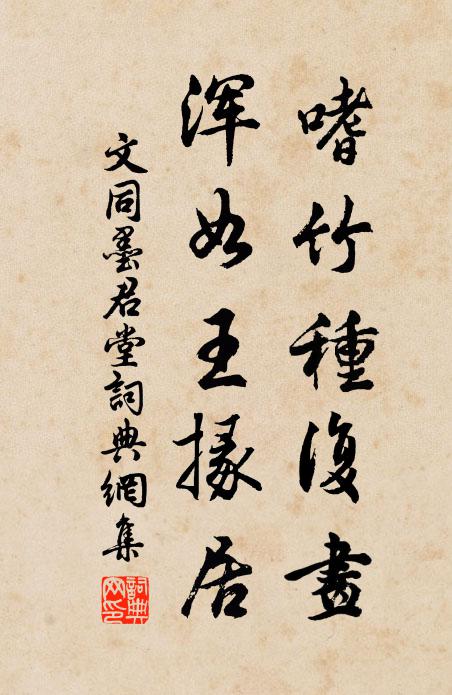 嗜竹種復畫
渾如王掾居
文同墨君堂詞典網集
詞典网印